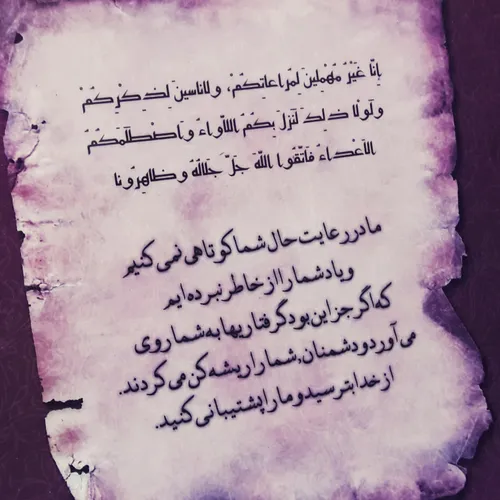 إِنَّا غَيْرُ مُهْمِلِينَ لِمُرَاعَاتِكُمْ، وَلَا نَاسِينَ لِذِكْرِكُمْ
وَلَوْلَا ذَلِكَ لَنَزَلَ بِكُمُ اللَّأْوَاءُ وَاصْطَلَمَكُمُ
الْأَعْدَاءُ فَاتَّقُوا اللَّهَ جَلَّ جَلَالُهُ وَظَاهِرُونَا
ما در رعایت حال شما کوتاهی نمی کنیم
و یاد شما را از خاطر نبرده ایم
که اگر جز این بود گرفتاریها به شما روی
می آورد و دشمنان، شما را ریشه کن می کردند.
از خدا بترسید و ما را پشتیبانی کنید.